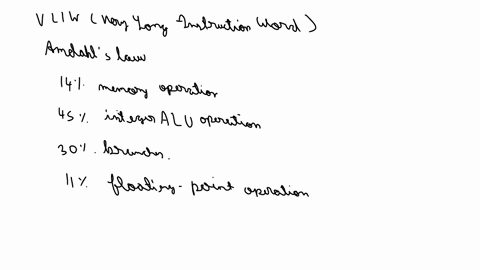 VLIW (Very Long Instruction Word)
Amdahl's law
14% memory operation
45% integer ALU operation
30% branches.
11% floating-point operation